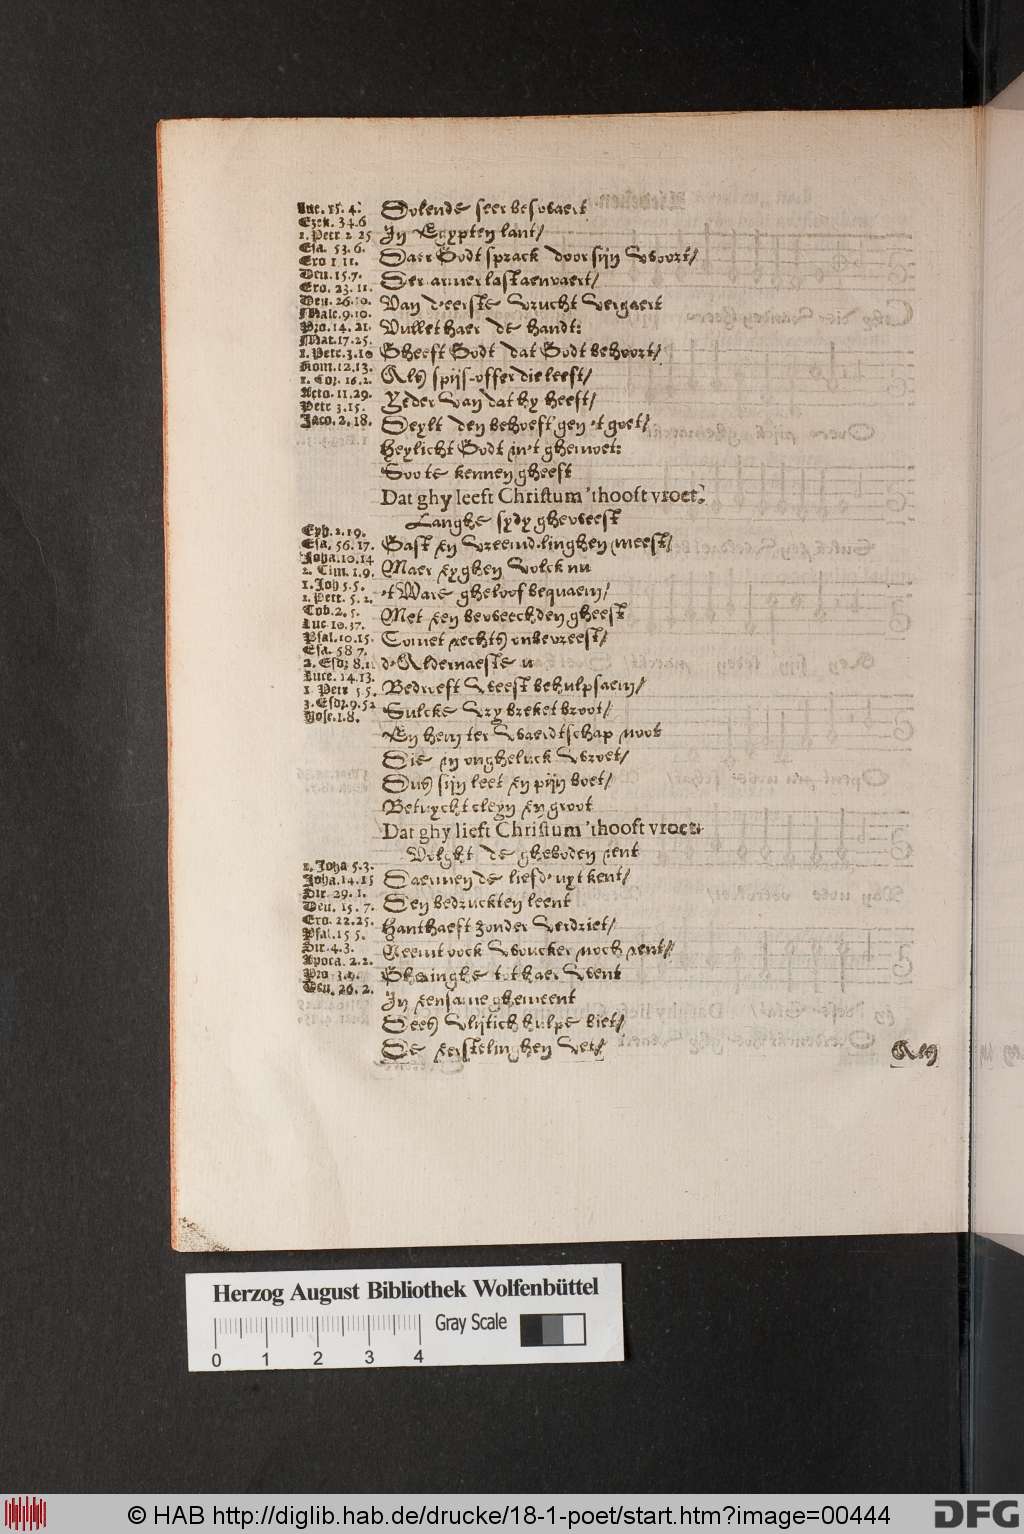 Luc. 15. 4.
Ezek. 34.6
1. Petr. 2 25
Esa. 53. 6.
Exo 1 11.
Deu. 15.7.
Exo. 23. 11.
Deu. 26.10.
Male.9.10.
Pro. 14. 21.
Mat. 17. 25.
1. Petr. 3.10
Rom. 12. 13.
1. Cor. 16. 2.
Acto. 11. 29.
Petr 3. 15.
Jaco. 2. 18.
Dolende seer beswaert
In Egypten lant/
Daer Godt sprack door sijn woort/
Der armer last aenvaert/
Van d'eerste vrucht vergaert
Vullet haer de handt:
Gheeft Godt dat Godt behoort/
Als spijs-offer die leeft/
Yeder van dat hy heeft/
Deylt den behoeft'gen 't goet/
Heylicht Godt in't ghemoet:
Soo te kennen gheeft
Dat ghy leeft Christum 'thooft vroet.
Eph. 2. 19.
Esa. 56. 17.
Joha. 10.14
2. Tim. 1. 9.
1. Joh 5. 5.
1. Petr. 5. 2.
Tob. 2. 5.
Luc 10. 37.
Psal. 10. 15.
Esa. 58 7.
2. Esdr 8.1
Luce. 14. 13.
1. Petr 5 5.
3. Esdr. 9. 52
Jose. 1. 8.
Langhe sydy gheweest
Gast en vreemd-linghen meest/
Maer eyghen volck nu
't Ware gheloof bequaem/
Met een beweechden gheest
Comet rechts onbevreest/
d'Aldernaeste u
Bedroeft weest behulpsaem/
Sulcke vry breket broot/
En hem ter waerdtschap noot
Die in ongheluck wroet/
Dus sijn leet en pijn boet/
Betuycht cleyn en groot
Dat ghy lieft Christum 'thooft vroet.
1. Joha 5. 3.
Joha. 14. 15
Sir. 29. 1.
Deu. 15. 7.
Exo. 22. 25.
Psal. 15 5.
Sir. 4. 3.
Apoca. 2. 2.
Pro 3. 9.
Deu. 26. 2.
Volght de gheboden jent
Daermen de liefd' uyt kent/
Den bedruckten leent
Hanthaeft zonder verdriet/
Neemt oock woucker noch rent/
Gheringhe tot haer went
In eensame ghemeent
Dees vlijtich hulpe biet/
De eerstelinghen vet/
Als
Herzog August Bibliothek Wolfenbüttel
Gray Scale
0 1 2 3 4
© HAB http://diglib.hab.de/drucke/18-1-poet/start.htm?image=00444
DFG